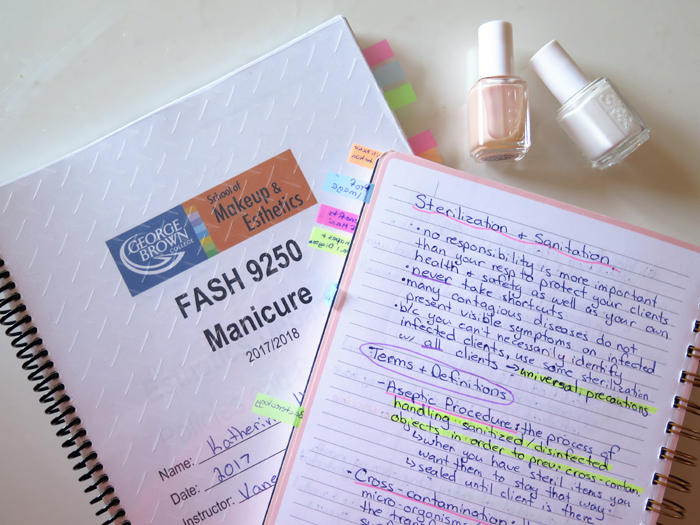 GEORGE
BROWN
COLLEGE
School of
Makeup &
Esthetics
FASH 9250
Manicure
2017/2018
Name: Katherin
Date: 2017
Instructor: Vane
essie
Sterilization & Sanitation
• no responsibility is more important
than your resp to protect your clients
health & safety as well as your own
• never take shortcuts
• many contagious diseases do not
present visible symptoms on infected
• b/c you can't necessarily identify
infected clients, use same sterilization
w/ all clients → universal precautions
• Terms + Definitions
- Aseptic Procedure: the process of
handling sanitized/disinfected
objects in order to prev. cross-contam.
↳ when you have steril items you
want them to stay that way
↳ sealed until client is there
• Cross-contamination:
micro-organisms
the tran